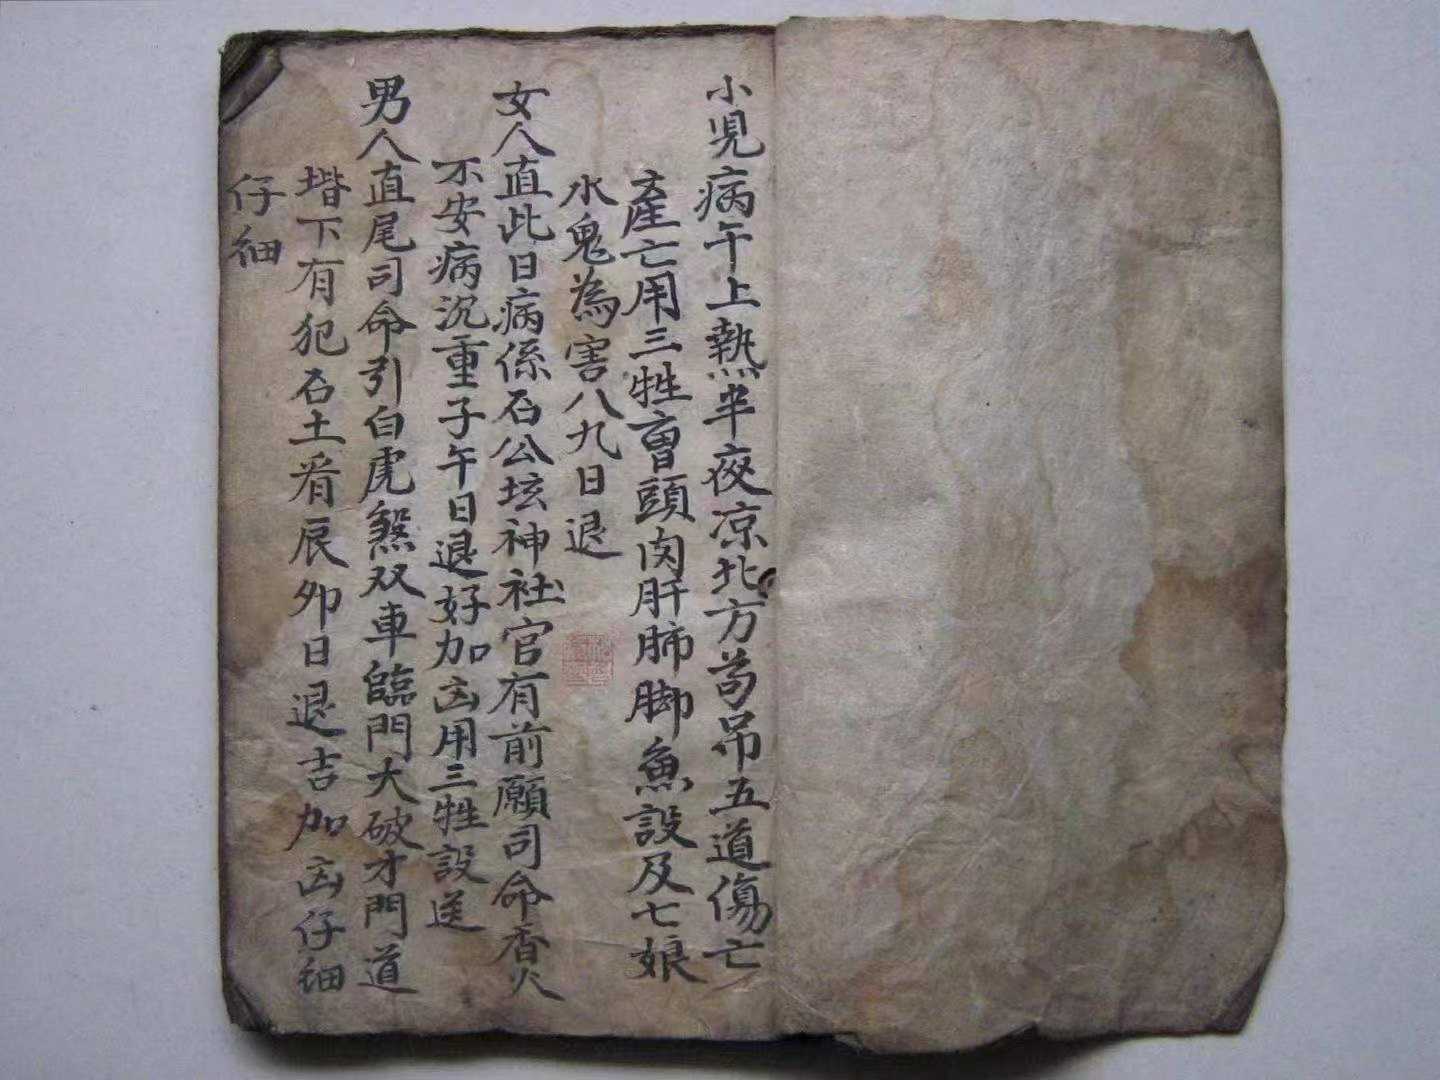 小児病午上熱半夜凉北方苟吊五道傷亡
產亡用三牲酓頭肉肝肺脚魚設及七娘
水鬼為害八九日退
女人直此日病係石公坛神社官有前願司命香火
不安病沉重子午日退好加凶用三牲設送
男人直尾司命引白虎煞双車臨門大破才門道
堦下有犯石土看辰卯日退吉加凶仔細
仔細